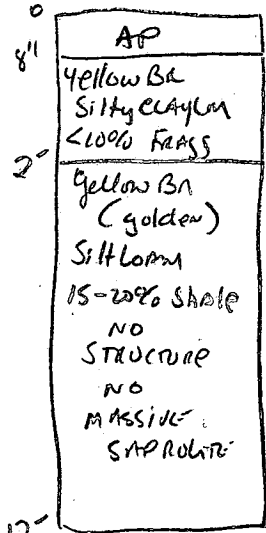 0
AP
8"
Yellow BR
Silty CLAYLM
<10% FRAGS
2'
Yellow BN
(golden)
Silt Loam
15-20% Shale
NO
STRUCTURE
NO
MASSIVE
SAPROLITE